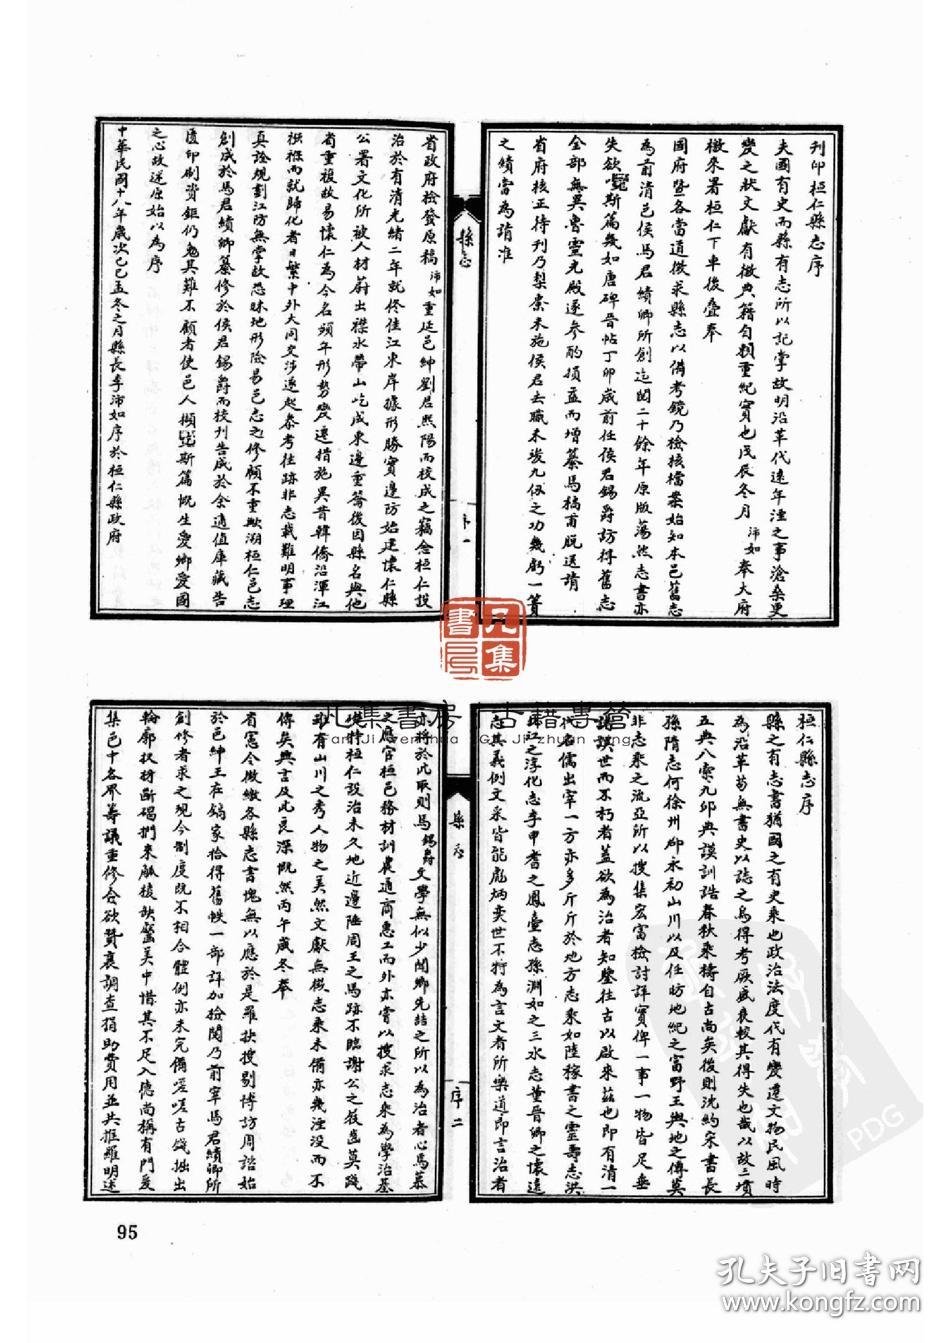 刊印桓仁縣志序
夫國有史而縣有志所以記掌故明沿革代遠年湮之事滄桑更
變之狀文獻有徵典籍自類重紀實也戊辰冬月沛如奉大府
檄來署桓仁下車後疊奉
國府暨各當道徵求縣志以備考鏡乃檢核檔案始知本邑舊志
為前清邑侯馬君績卿所創迄閱二十餘年原版蕩然志書亦
失欲覓斯篇幾如唐碑晉帖丁卯歲前任侯君錫爵訪得舊志
全部無異魯靈光殿遂參酌損益而增纂焉稿甫脫送請
省府核正待刊乃梨棗未施侯君去職未竣九仞之功幾虧一簣
之績當為請准
省政府檢發原稿沛如重延邑紳劉君熙陽而校成之竊念桓仁設
治於有清光緒二年就佟佳江東岸據形勝實邊防始建懷仁縣
公署文化所被人材蔚出襟水帶山屹成東邊重鎮後因縣名與他
省重複故易懷仁為今名頻年形勢變遷措施異昔韓僑沿渾江
襁褓而就歸化者日繁中外大同交涉遂起泰考往跡非志載難明事理
真詮規劃江防無掌故恐昧地形險易邑志之修顧不重歟溯桓仁邑志
創成於馬君績卿纂修於侯君錫爵而校刊告成於余適值庫藏告
匱印刷資鉅仍勉其難不顧者使邑人擷斯篇慨生愛鄉愛國
之心故遂原始以為序
中華民國十八年歲次己巳孟冬之月縣長李沛如序於桓仁縣政府
縣志
序一
桓仁縣志序
縣之有志書猶國之有史乘也政治法度代有變遷文物民風時
為沿革苟無書史以誌之烏得考厥盛衰較其得失也哉以故三墳
五典八索九邱典謨訓誥春秋乘檮自古尚矣後則沈約宋書長
孫隋志何徐州郡永初山川以及任昉地紀之富野王輿地之傳莫
非志乘之流亞所以搜集宏富檢討詳實俾一事一物皆足垂
謨訓世而不朽者蓋欲為治者知鑒往古以啟來茲也即有清一
代名儒出宰一方亦多斤斤於地方志乘如陸稼書之靈壽志洪
江之淳化志李申耆之鳳臺志孫淵如之三水志董晉卿之懷遠
志其義例文采皆能彪炳奕世不特為言文者所樂道即言治者
亦將於此取則焉錫爵文學無似少聞鄉先詰之所以為治者心焉慕
之應官桓邑務材訓農通商惠工而外亦嘗以搜求志乘為學治基
礎特桓仁設治未久地近邊陲周王之馬跡不臨謝公之屐齒莫踐
雖有山川之秀人物之美然文獻無徵志乘未備亦幾湮沒而不
傳矣興言及此良深慨然丙午歲冬奉
省憲令徵繳各縣志書愧無以應於是羅抉搜剔博訪周諮始
於邑紳王在鎬家拾得舊帙一部詳加檢閱乃前宰馬君績卿所
創修者求之現今制度既不相合體例亦未完備嗟嗟古錢拙出
輪廓狀材斷碣捫來觚棱缺蠹美中惜其不足入德尚稱有門爰
集邑中各界籌議重修僉欲贊襄調查捐助費用並共推羅明述
縣志
序二
凡集書房
古籍專營
Fan Ji Wen Hua Gu Ji zhuan ying
凡集書房
PDG
95
孔夫子旧書网
www.kongfz.com